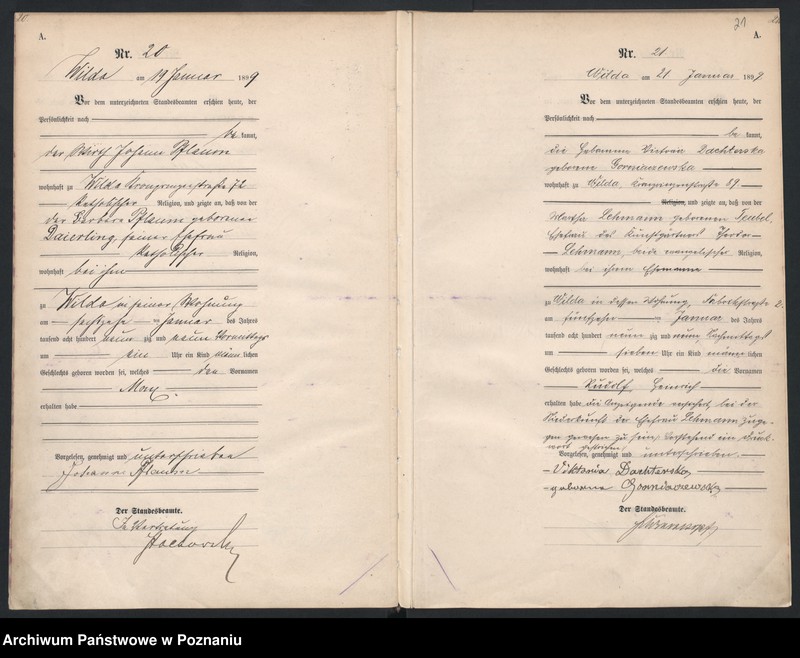 20.
A.
Nr. 20
Wilda am 19 Januar 1899
Vor dem unterzeichneten Standesbeamten erschien heute, der
Persönlichkeit nach
be kannt,
der Wirth Johann Pflaum
wohnhaft zu Wilda Kronprinzenstraße 72
katholischer Religion, und zeigte an, daß von der
der Barbara Pflaum geborenen
Daierling, seiner Ehefrau
katholischer Religion,
wohnhaft bei ihm
zu Wilda in seiner Wohnung
am sechszehn ten Januar des Jahres
tausend acht hundert neun zig und neun Vormittags
um ein Uhr ein Kind männ lichen
Geschlechts geboren worden sei, welches den Vornamen
Max
erhalten habe
Vorgelesen, genehmigt und unterschrieben
Johann Pflaum
Der Standesbeamte.
In Vertretung
21
A.
Nr. 21
Wilda am 21 Januar 1899
Vor dem unterzeichneten Standesbeamten erschien heute, der
Persönlichkeit nach
be kannt,
die Hebamme Dachterska
geborene Gorniaczewska
wohnhaft zu Wilda, Kronprinzenstraße 89.
Religion, und zeigte an, daß von der
Martha Lehmann geborenen
Ehefrau des Kunstgärtners
Lehmann, beide evangelischer Religion,
wohnhaft bei ihrem Ehemanne
zu Wilda in dessen Wohnung, Fabrikstraße 2.
am fünfzehn ten Januar des Jahres
tausend acht hundert neun zig und neun Nachmittags
um sieben Uhr ein Kind männ lichen
Geschlechts geboren worden sei, welches die Vornamen
Rudolf Heinrich
erhalten habe die Anzeigende versichert, bei der
Niederkunft der Ehefrau Lehmann zuge-
gen gewesen zu sein. Vorstehend ein Druck-
wort gestrichen
Vorgelesen, genehmigt und unterschrieben.
Viktoria Dachterska
geborne Gorniaczewska
Der Standesbeamte.
Archiwum Państwowe w Poznaniu